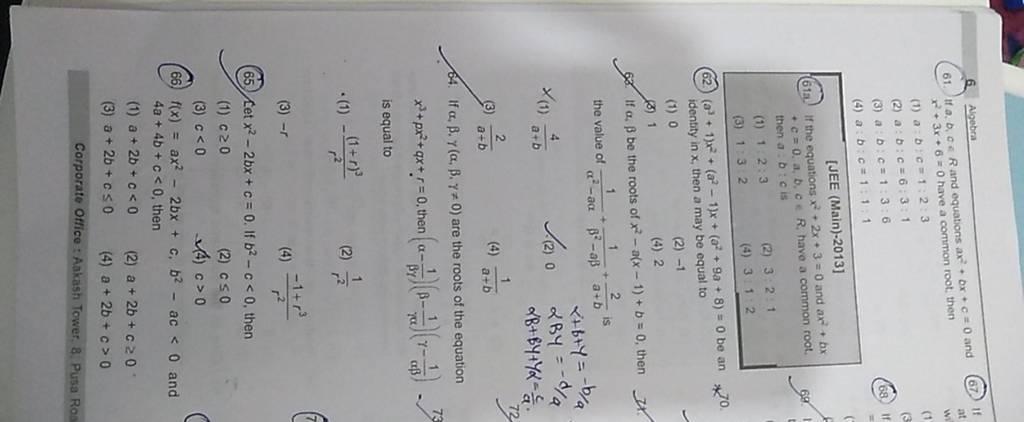 6 Algebra
61. If a, b, c ∈ R and equations ax² + bx + c = 0 and
x² + 3x + 6 = 0 have a common root, then
(1) a : b : c = 1 : 2 : 3
(2) a : b : c = 6 : 3 : 1
(3) a : b : c = 1 : 3 : 6
(4) a : b : c = 1 : 1 : 1
[JEE (Main)-2013]
61a. If the equations x² + 2x + 3 = 0 and ax² + bx
+ c = 0, a, b, c ∈ R, have a common root,
then a : b : c is
(1) 1 : 2 : 3 (2) 3 : 2 : 1
(3) 1 : 3 : 2 (4) 3 : 1 : 2
62. (a³ + 1)x² + (a² – 1)x + (a² + 9a + 8) = 0 be an
identity in x, then a may be equal to
(1) 0 (2) –1
(3) 1 (4) 2
63. If α, β be the roots of x² – a(x – 1) + b = 0, then
the value of 1/(α² – aα) + 1/(β² – aβ) + 2/(a + b) is
(1) 4/(a + b) (2) 0
(3) 2/(a + b) (4) 1/(a + b)
α+β+γ = -b/a
αβγ = -d/a
αβ+βγ+γα = c/a
64. If α, β, γ (α, β, γ ≠ 0) are the roots of the equation
x³ + px² + qx + r = 0, then (α – 1/βγ)(β – 1/γα)(γ – 1/αβ)
is equal to
(1) –(1 + r)³/r² (2) 1/r²
(3) –r (4) (–1 + r³)/r²
65. Let x² – 2bx + c = 0. If b² – c < 0, then
(1) c ≥ 0 (2) c ≤ 0
(3) c < 0 (4) c > 0
66. f(x) = ax² – 2bx + c, b² – ac < 0 and
4a + 4b + c < 0, then
(1) a + 2b + c < 0 (2) a + 2b + c ≥ 0
(3) a + 2b + c ≤ 0 (4) a + 2b + c > 0
Corporate Office : Aakash Tower, 8, Pusa Roa
67. If
at
68. If
69.
70.
71.
72.
73